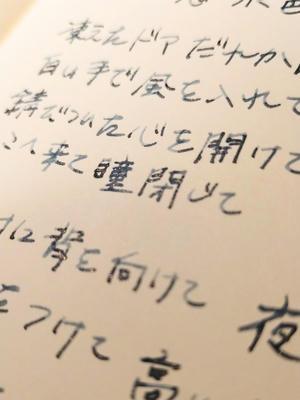 凍えたドア だれか
白い手で風を入れて
錆びついた心を開けて
来て瞳閉じて
に背を向けて
をつけて 高
夜